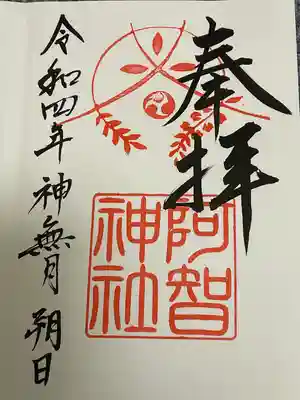 奉拝
阿智
神社
令和四年 神無月 朔日